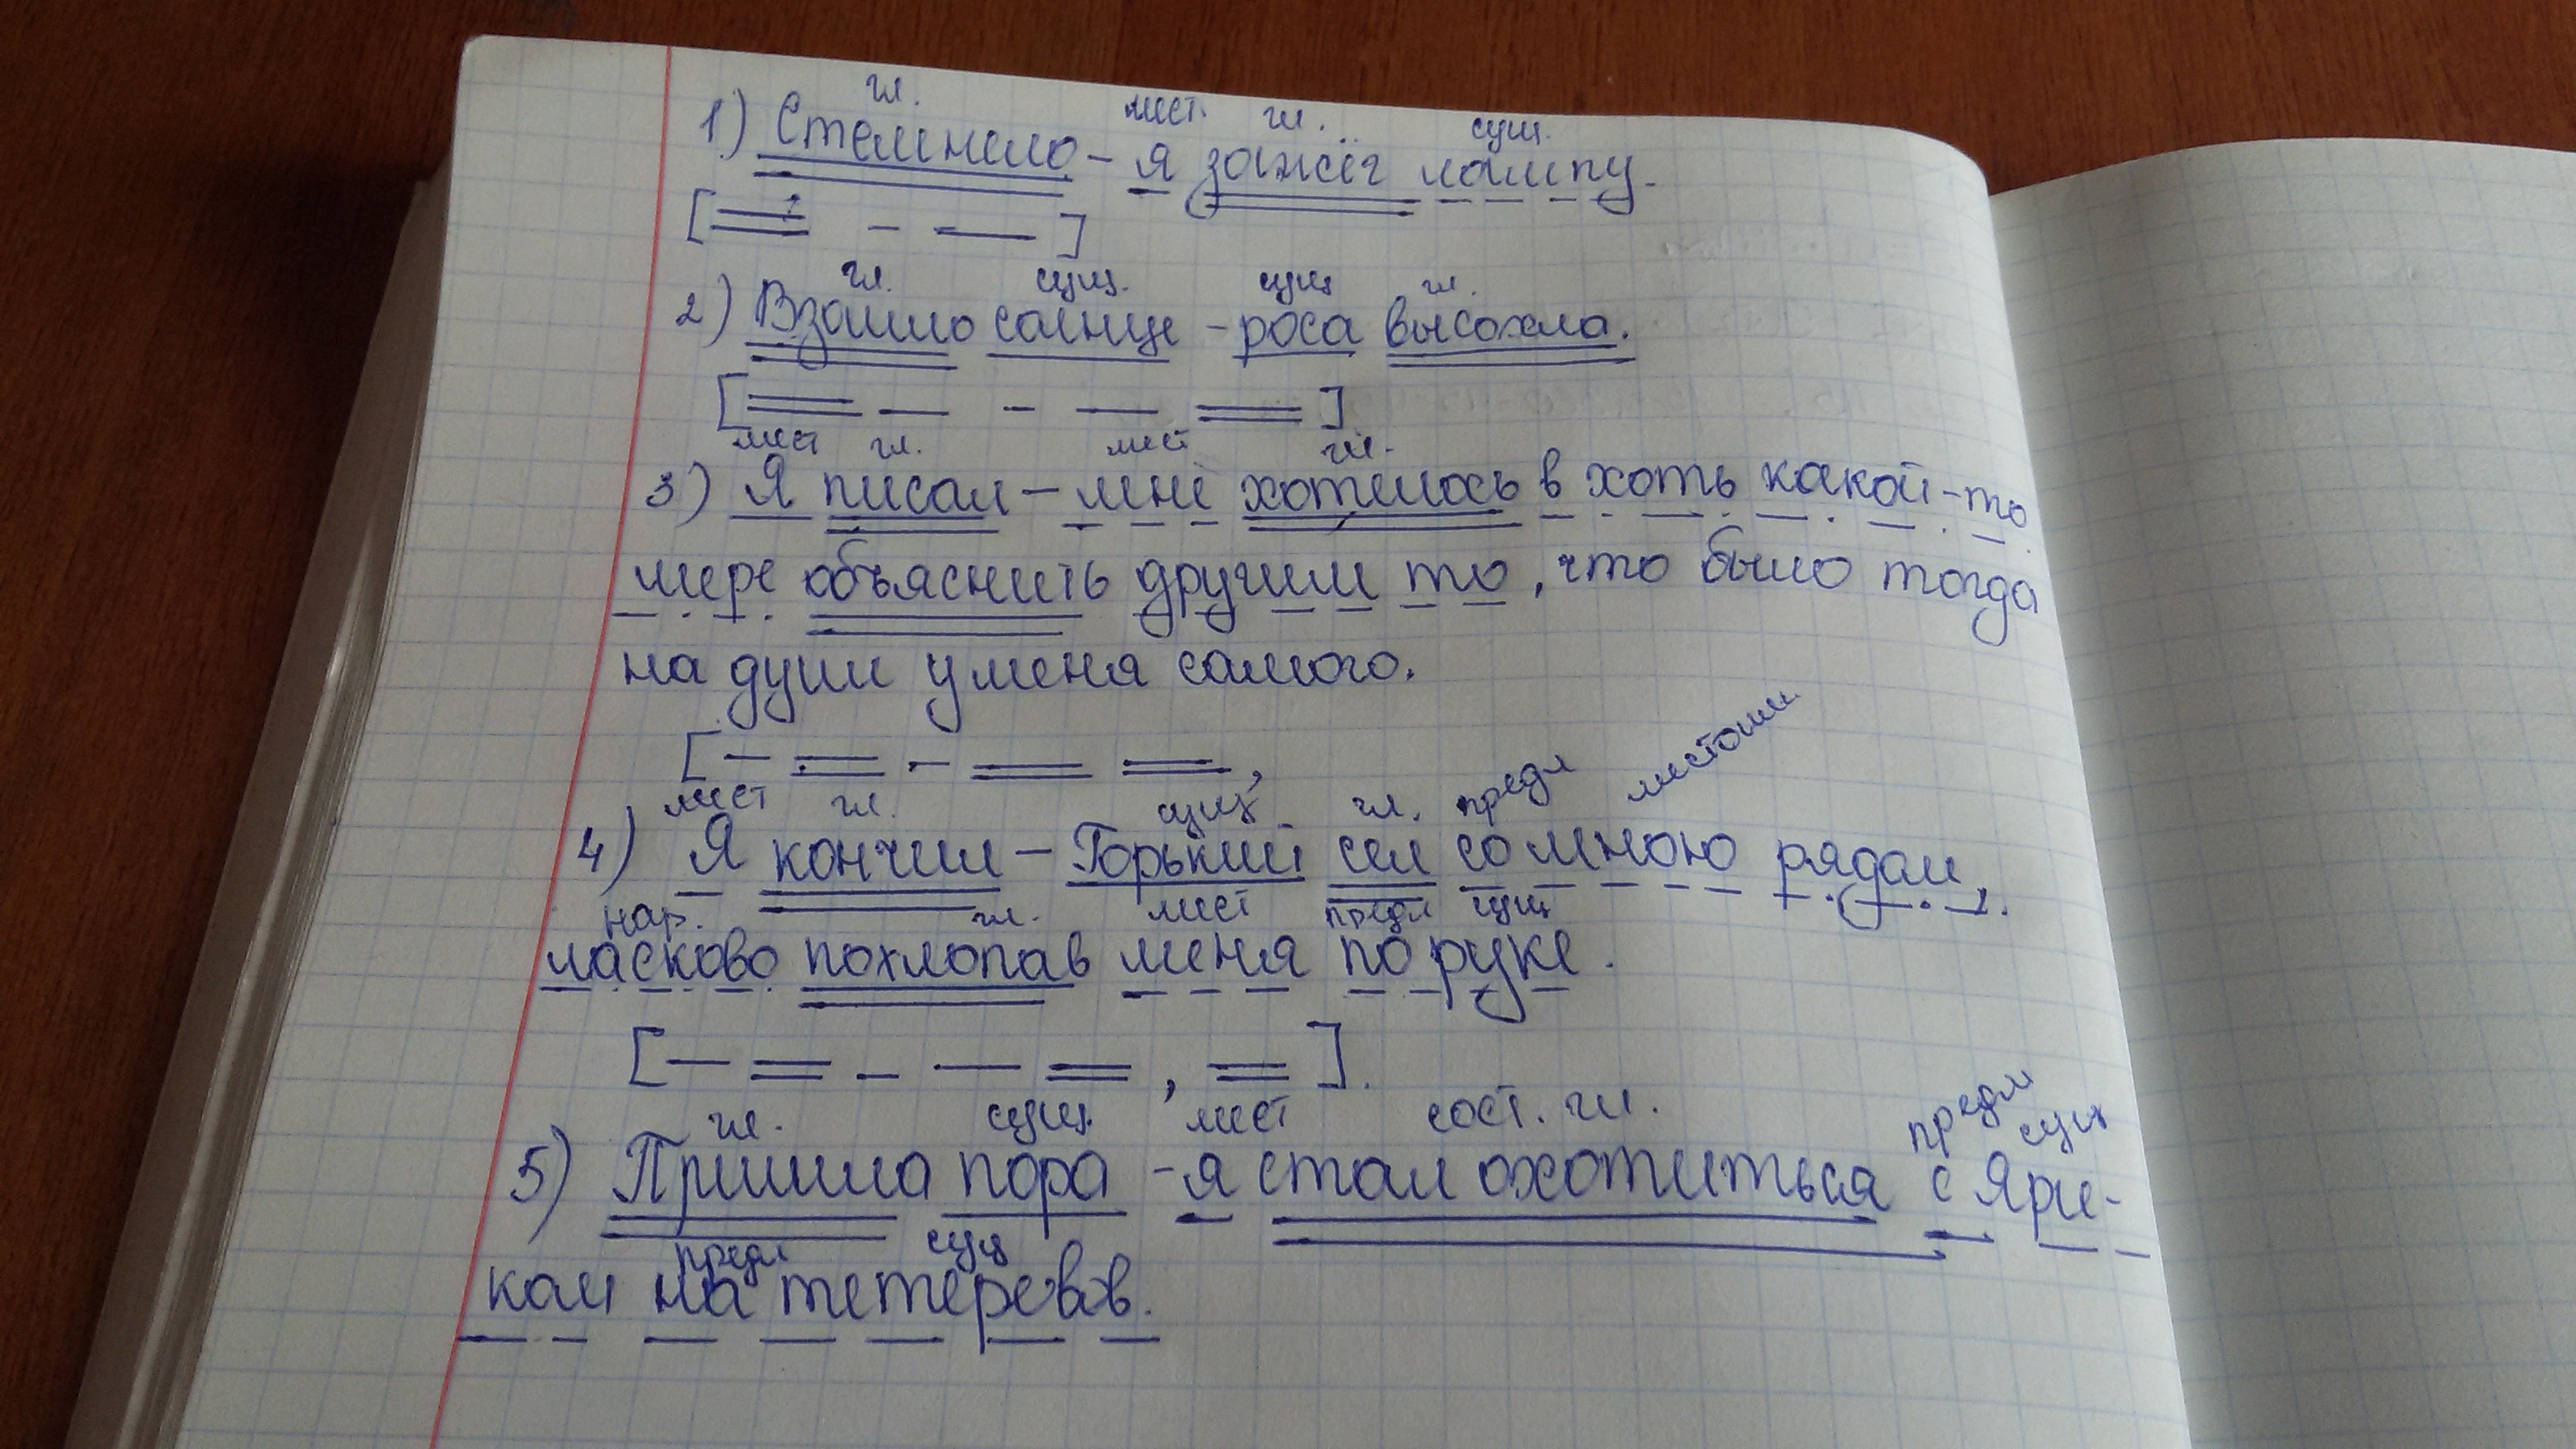 гл. мест. гл. сущ.
1) Стемнело - я зажёг лампу.
[ - ]
гл. сущ. сущ гл.
2) Взошло солнце - роса высохла.
[ - ]
мест гл. мест гл.
3) Я писал - мне хотелось в хоть какой-то
мере объяснить другим то, что было тогда
на душе у меня самого.
[ - ,
мест гл. сущ. гл. предл местоим
4) Я кончил - Горький сел со мною рядом,
нар. гл. мест предл сущ
ласково похлопав меня по руке.
[ - , ].
гл. сущ. мест сост. гл. предл сущ
5) Пришла пора - я стал охотиться с Яри-
предл сущ
ком на тетеревов.